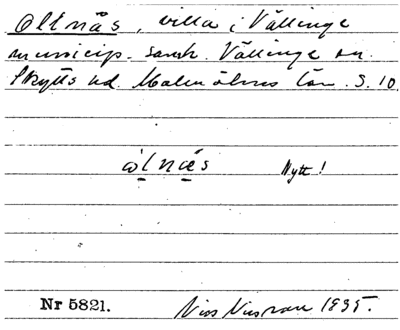 Olknäs, villa i Vällinge
municip. samh. Vällinge sn.
Skytts hd. Malmöhus län. S. 10
ωlnæs Nytt!
Nr 5821. 1935.